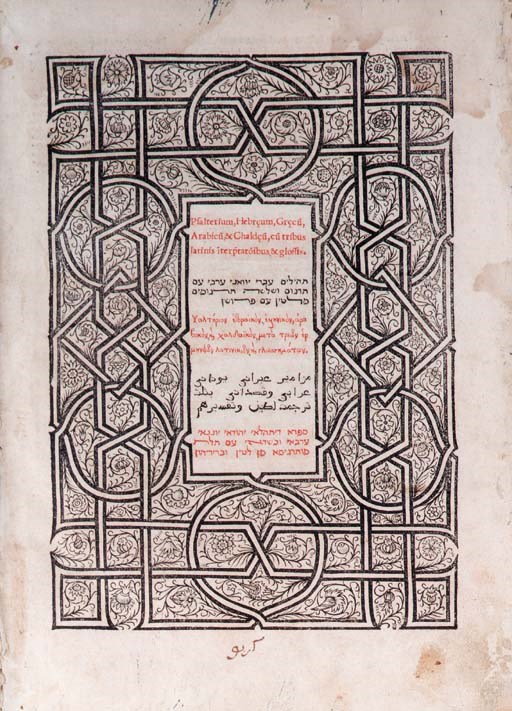 Psalterium, Hebręum, Gręcū,
Arabicū, & Chaldęū, cū tribus
latinis īterp̄tatōibus & glossis.
תהילים עברי יוואני ערבי עם
תרגום ושלשה תרגומים
בלטין עם פרושן
Ψαλτήριον ἑβραικὸν, ἑλληνικὸν, ἀρα
βικὸν, χαλδαικὸν, μετὰ τριῶν ἑρ
μηνειῶν λατινικῶν καὶ γλωσσημάτων.
مزامير عبراني يوناني
عرابي وقصداني بثلث
ترجمت لطين وتفسيرهم
ספרא דתהלאי יהודאי יונאי
ערבאי וכשדאי עם תלת
מן לטין